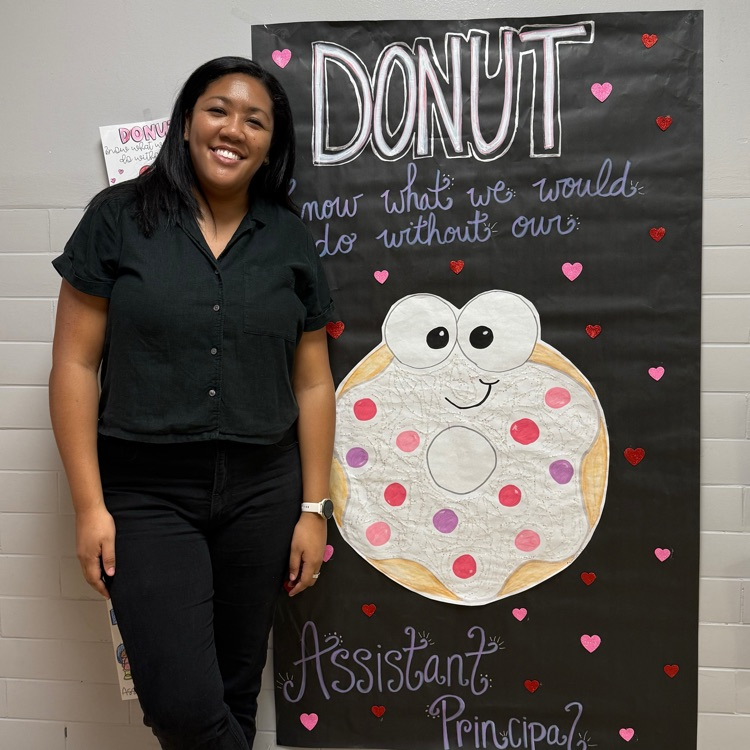 DONUT
now what we would
do without our
Assistant
Principal
DONU
know what
do without